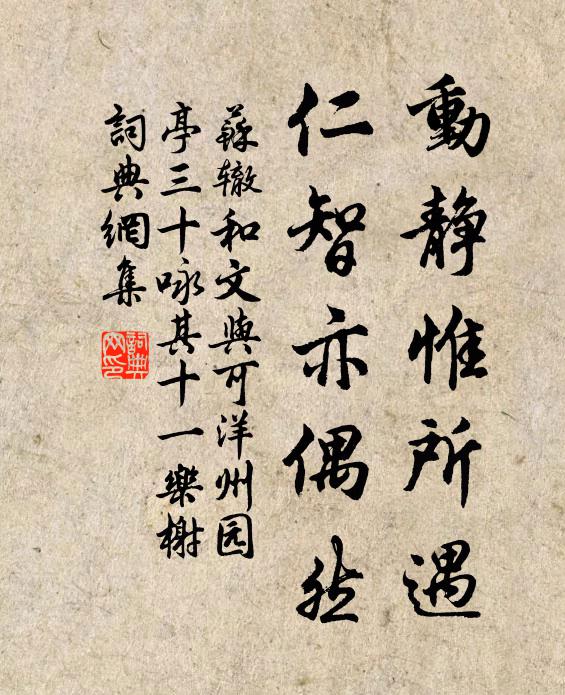 動靜惟所遇
仁智亦偶然
蘇轍和文與可洋州园
亭三十咏其十一樂榭
詞典網集
詞典
网印